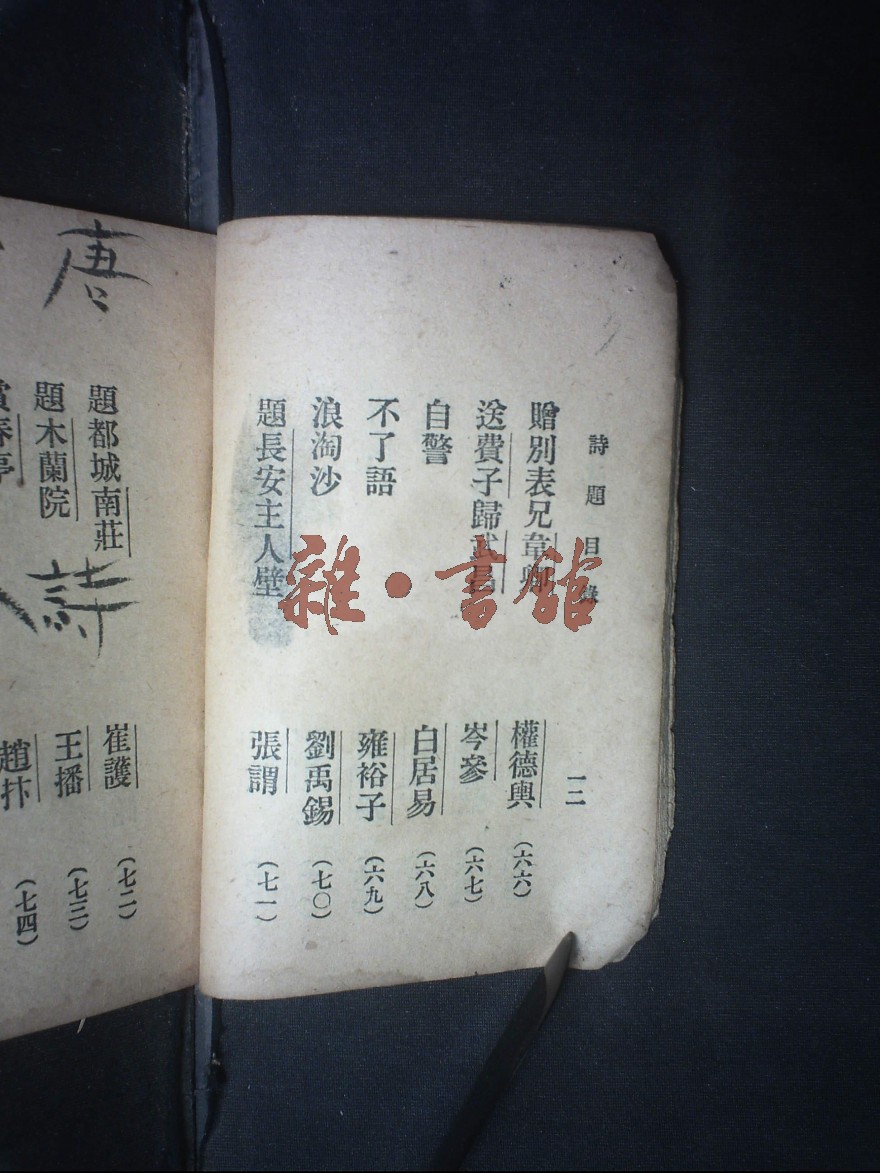 詩題目錄
一二
贈別表兄韋卿 權德輿 (六六)
送費子歸武昌 岑參 (六七)
自警 白居易 (六八)
不了語 雍裕子 (六九)
浪淘沙 劉禹錫 (七〇)
題長安主人壁 張謂 (七一)
題都城南莊 崔護 (七二)
題木蘭院 王播 (七三)
賞春亭 趙抃 (七四)
唐
詩
雜·書館